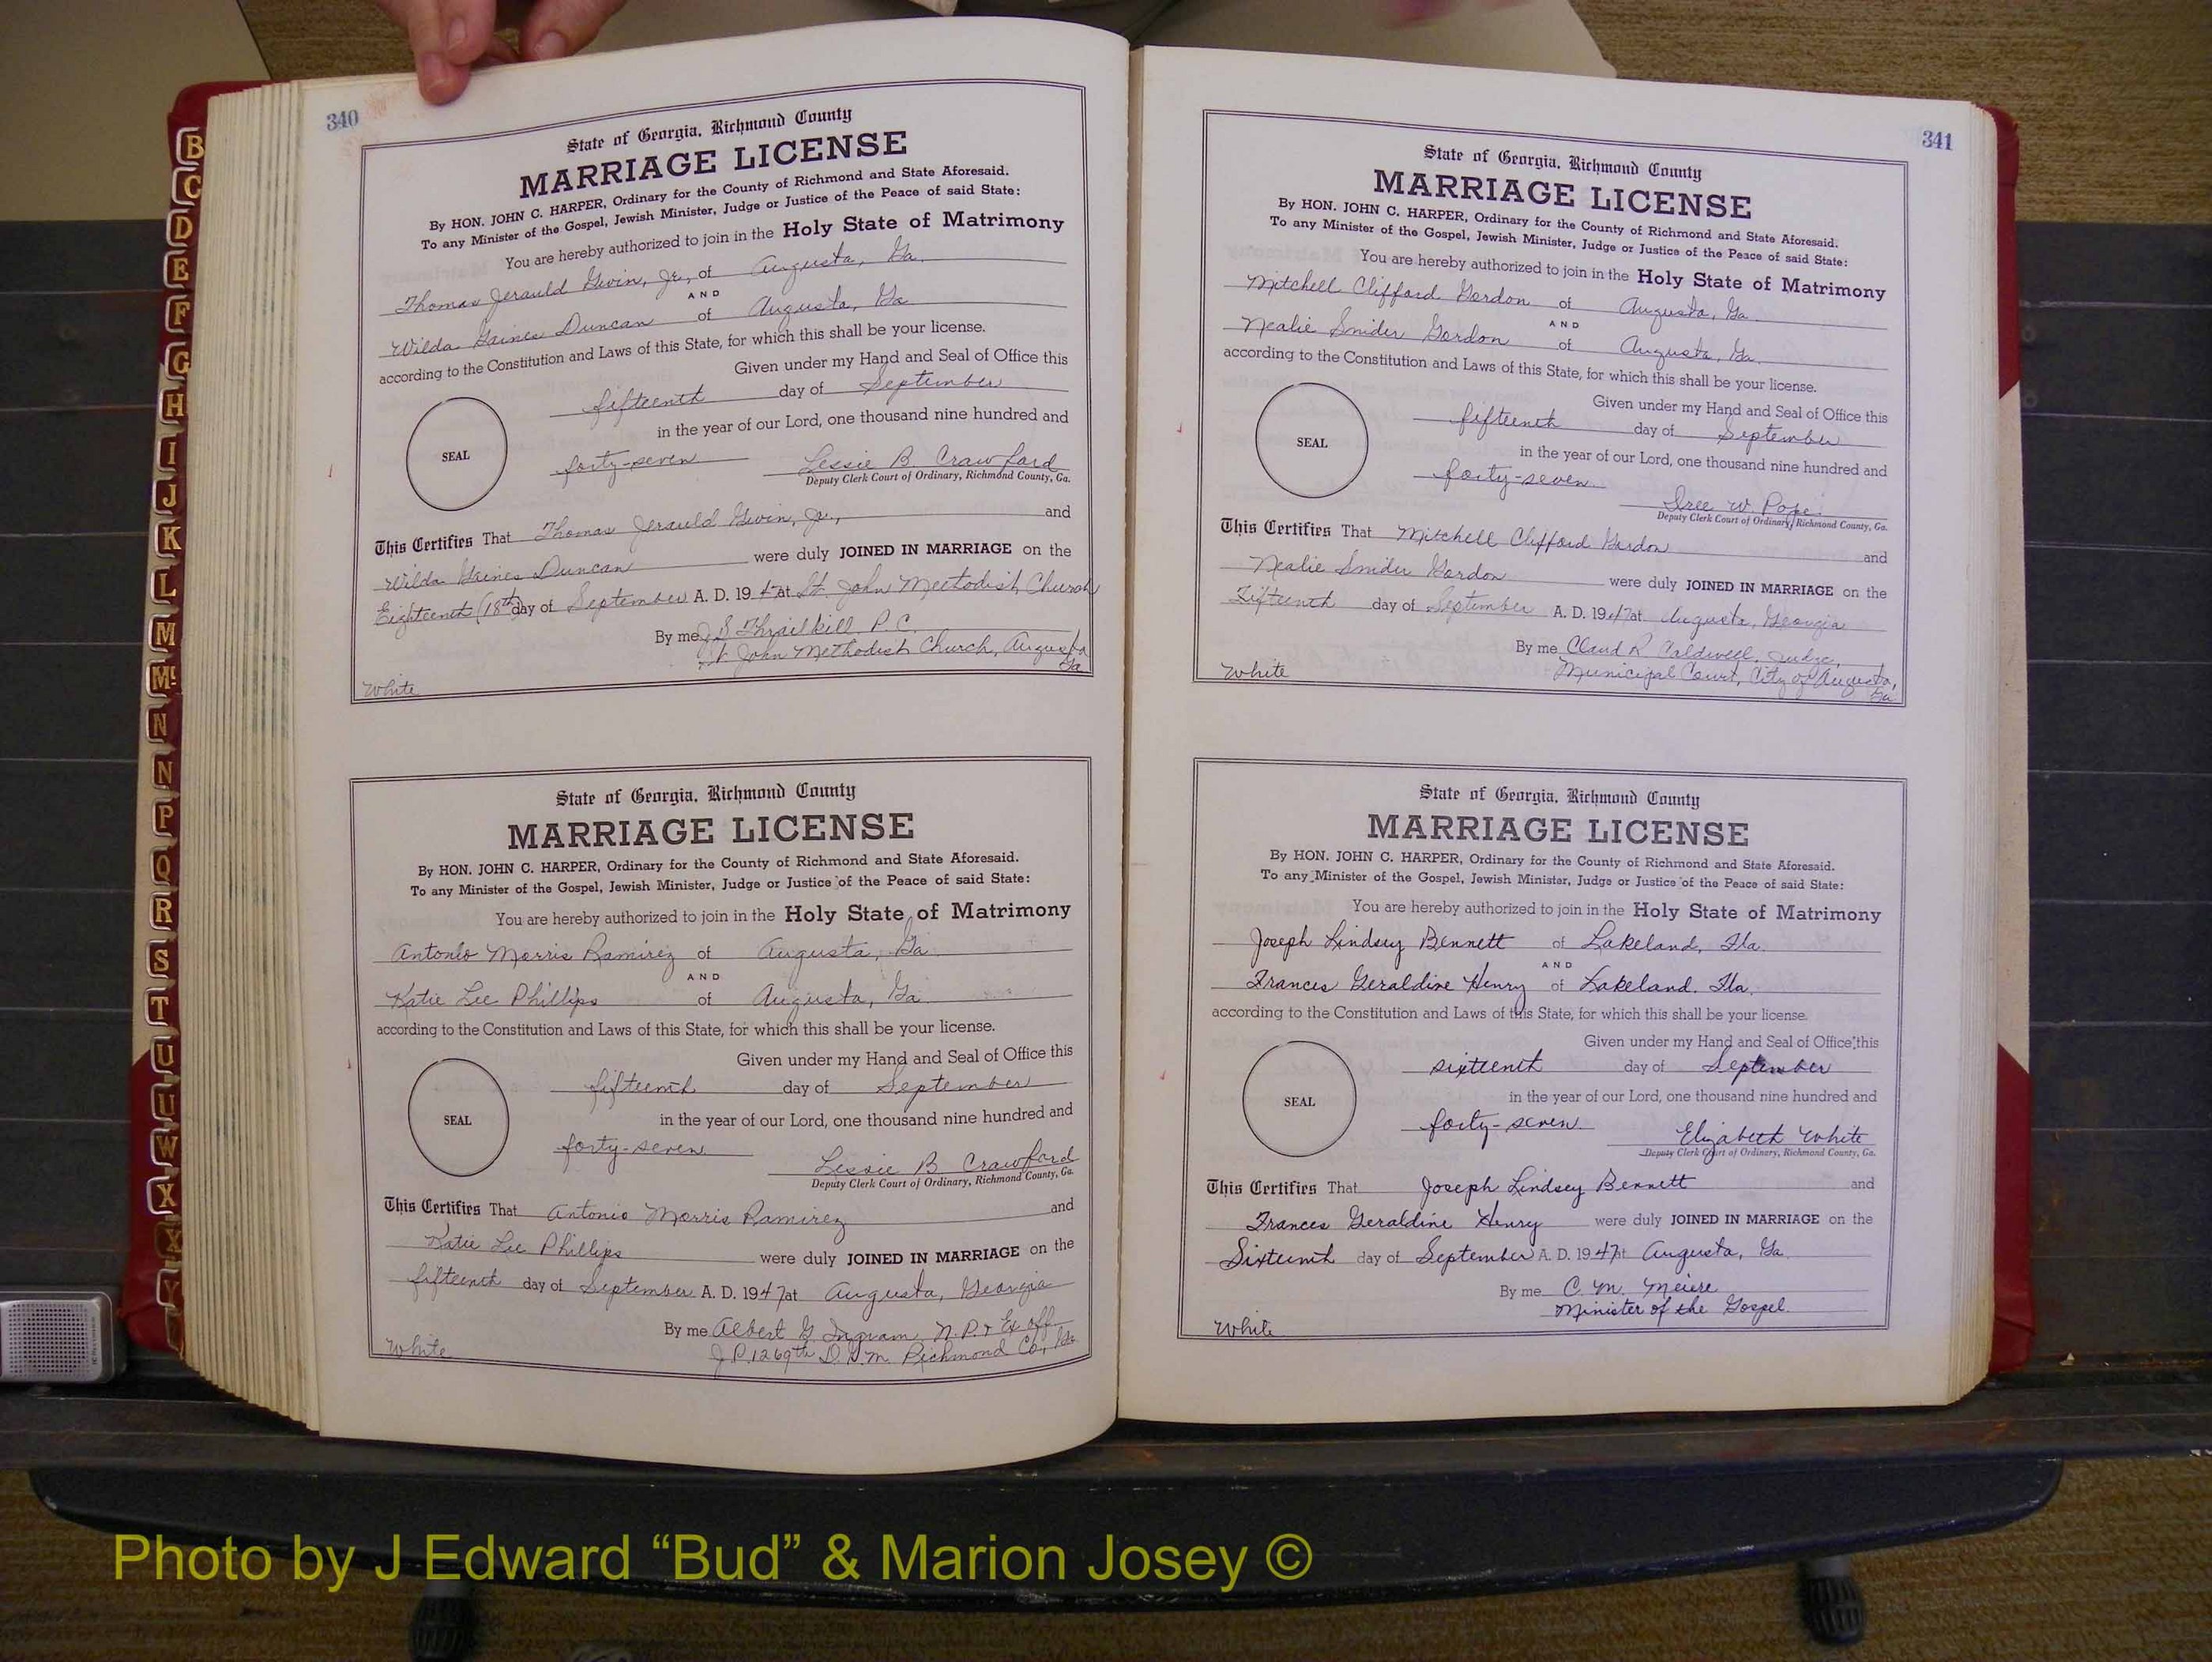 340
State of Georgia, Richmond County
MARRIAGE LICENSE
By HON. JOHN C. HARPER, Ordinary for the County of Richmond and State Aforesaid.
To any Minister of the Gospel, Jewish Minister, Judge or Justice of the Peace of said State:
You are hereby authorized to join in the Holy State of Matrimony
Thomas Jerauld Gwin, Jr., of Augusta, Ga.
AND
Wilda Gaines Duncan of Augusta, Ga
according to the Constitution and Laws of this State, for which this shall be your license.
Given under my Hand and Seal of Office this
fifteenth day of September
in the year of our Lord, one thousand nine hundred and
SEAL
forty-seven Lessie B Crawford
Deputy Clerk Court of Ordinary, Richmond County, Ga.
This Certifies That Thomas Jerauld Gwin, Jr., and
Wilda Gaines Duncan were duly JOINED IN MARRIAGE on the
Eighteenth (18th) day of September A. D. 1947 at St. John Methodist Church
By me J S Thrailkill P. C.
St John Methodist Church, Augusta
Ga
White
State of Georgia, Richmond County
MARRIAGE LICENSE
By HON. JOHN C. HARPER, Ordinary for the County of Richmond and State Aforesaid.
To any Minister of the Gospel, Jewish Minister, Judge or Justice of the Peace of said State:
You are hereby authorized to join in the Holy State of Matrimony
Antonio Morris Ramirez of Augusta, Ga.
AND
Katie Lee Phillips of Augusta, Ga.
according to the Constitution and Laws of this State, for which this shall be your license.
Given under my Hand and Seal of Office this
fifteenth day of September
in the year of our Lord, one thousand nine hundred and
SEAL
forty-seven Lessie B Crawford
Deputy Clerk Court of Ordinary, Richmond County, Ga.
This Certifies That Antonio Morris Ramirez and
Katie Lee Phillips were duly JOINED IN MARRIAGE on the
fifteenth day of September A. D. 1947 at Augusta, Georgia
By me Albert G. Ingram, N. P. & Ex off
J P. 1269th D. G. M. Richmond Co., Ga
White
341
State of Georgia, Richmond County
MARRIAGE LICENSE
By HON. JOHN C. HARPER, Ordinary for the County of Richmond and State Aforesaid.
To any Minister of the Gospel, Jewish Minister, Judge or Justice of the Peace of said State:
You are hereby authorized to join in the Holy State of Matrimony
Mitchell Clifford Gordon of Augusta, Ga.
AND
Nealie Snider Gordon of Augusta, Ga.
according to the Constitution and Laws of this State, for which this shall be your license.
Given under my Hand and Seal of Office this
fifteenth day of September
in the year of our Lord, one thousand nine hundred and
SEAL
forty-seven W. Pope
Deputy Clerk Court of Ordinary, Richmond County, Ga.
This Certifies That Mitchell Clifford Gordon and
Nealie Snider Gordon were duly JOINED IN MARRIAGE on the
Fifteenth day of September A. D. 1947 at Augusta, Georgia
By me Claud R Caldwell, Judge,
Municipal Court, City of Augusta,
Ga
White
State of Georgia, Richmond County
MARRIAGE LICENSE
By HON. JOHN C. HARPER, Ordinary for the County of Richmond and State Aforesaid.
To any Minister of the Gospel, Jewish Minister, Judge or Justice of the Peace of said State:
You are hereby authorized to join in the Holy State of Matrimony
Joseph Lindsey Bennett of Lakeland, Fla.
AND
Frances Geraldine Henry of Lakeland, Fla.
according to the Constitution and Laws of this State, for which this shall be your license.
Given under my Hand and Seal of Office this
sixteenth day of September
in the year of our Lord, one thousand nine hundred and
SEAL
forty-seven Elizabeth White
Deputy Clerk Court of Ordinary, Richmond County, Ga.
This Certifies That Joseph Lindsey Bennett and
Frances Geraldine Henry were duly JOINED IN MARRIAGE on the
Sixteenth day of September A. D. 1947 at Augusta, Ga.
By me C. M. Meiere
Minister of the Gospel.
White
B
C
D
E
F
G
H
I
J
K
L
M
Mc
N
N
P
Q
R
S
T
U
U
W
X
X
Y
Photo by J Edward “Bud” & Marion Josey ©